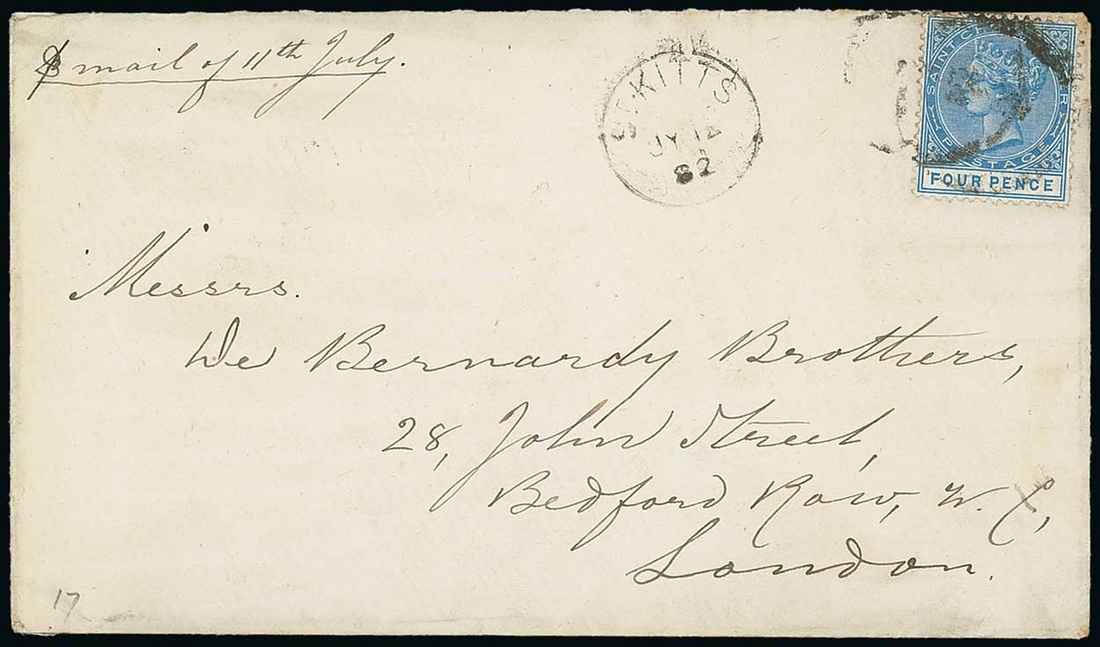 ⅌ mail of 11th July.
ST. KITTS
JY 14
82
SAINT CHRISTOPHER
POSTAGE
FOUR PENCE
Messrs.
De Bernardy Brothers,
28, John Street,
Bedford Row, W.C,
London.
17